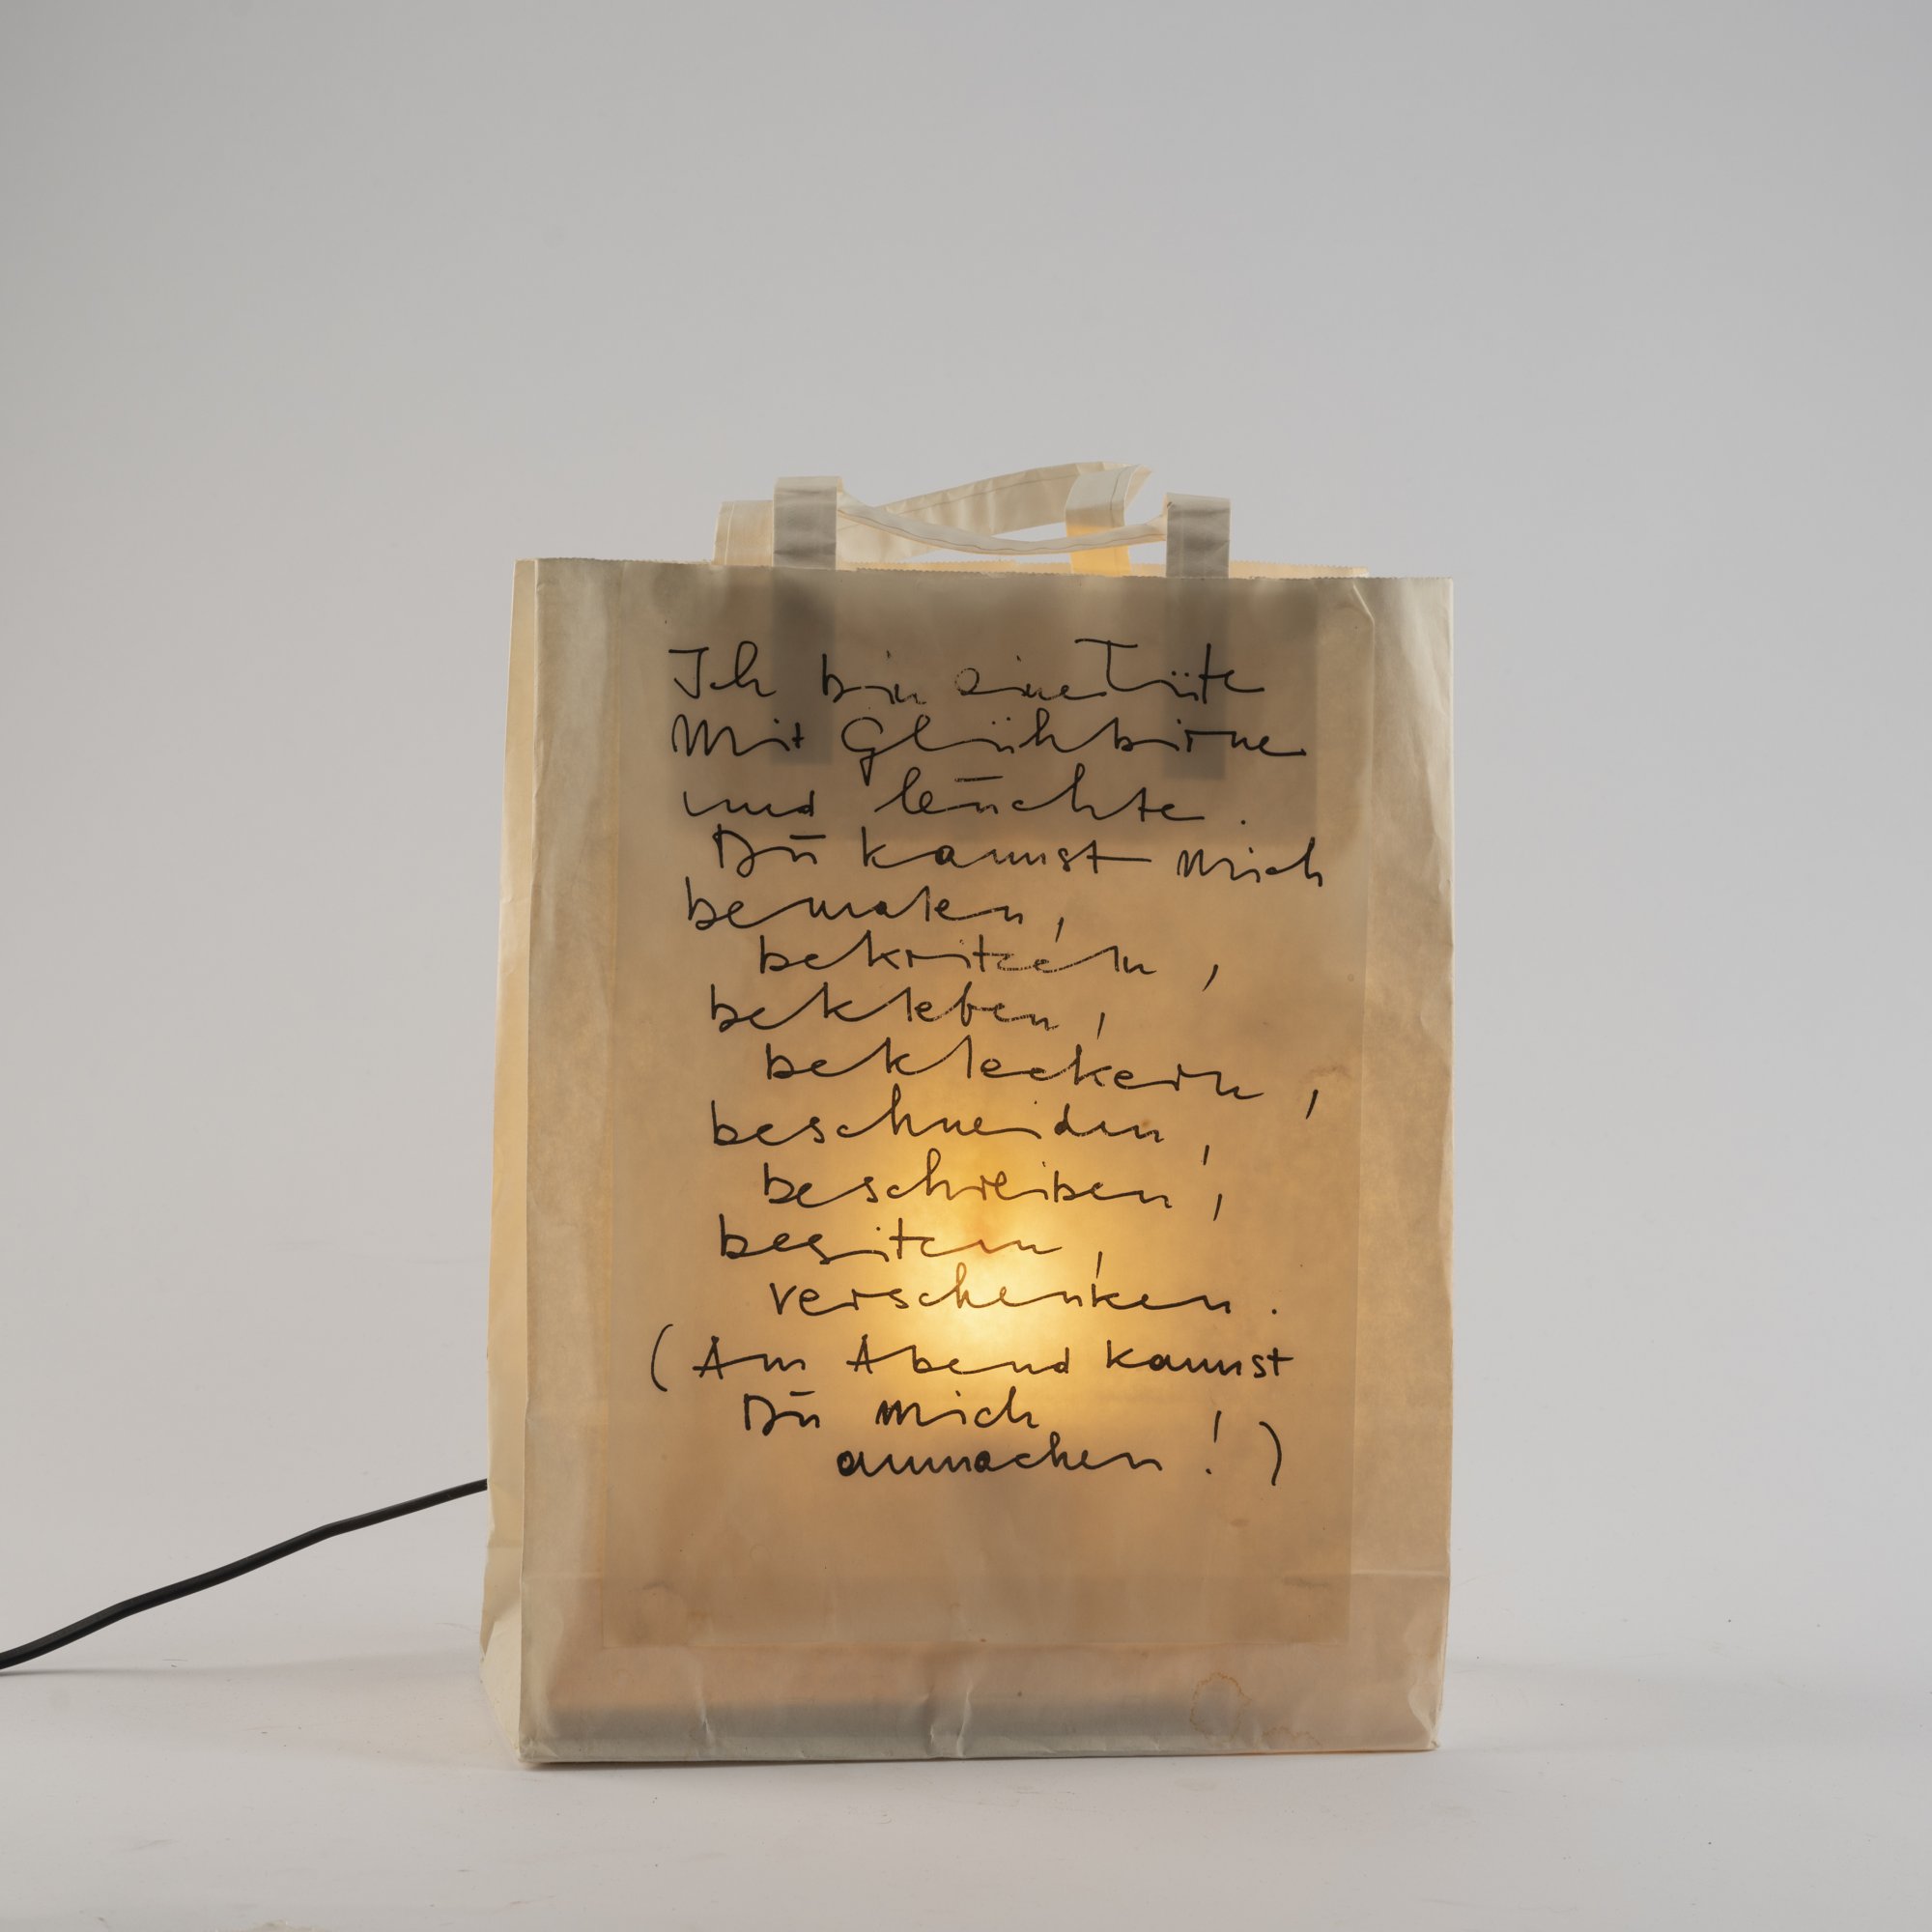 Ich bin eine Tüte
mit Glühbirne
und leuchte.
Du kannst mich
bemalen,
bekritzeln,
bekleben,
bekleckern,
beschneiden,
beschreiben,
besitzen,
verschenken.
(Am Abend kannst
Du mich
anmachen!)